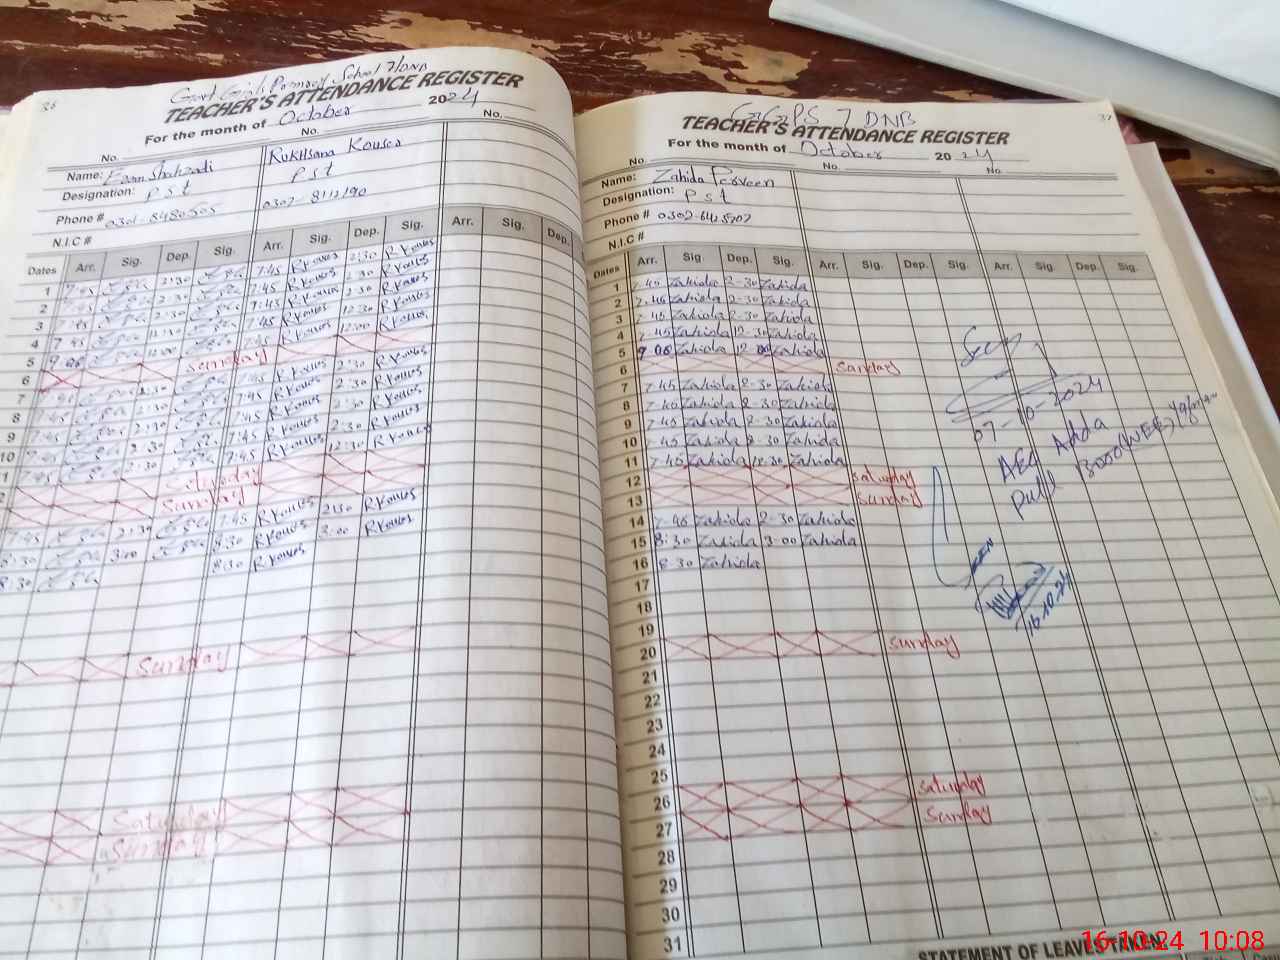 36
Govt Girls Primary School 7/DNB
TEACHER'S ATTENDANCE REGISTER
For the month of October 2024
No. No. No.
Name: Rukhsana Kousar
Designation: P S t P S t
Phone # 0301-8480505
N.I.C #
Dates Arr. Sig. Dep. Sig. Arr. Sig. Dep. Sig. Arr. Sig. Dep.
1 7:45 2:30 7:45 R Kousar 2:30 R Kousar
2 7:45 2:30 7:45 R Kousar 2:30 R Kousar
3 7:45 2:30 7:45 R Kousar 2:30 R Kousar
4 7:45 12:30 7:45 R Kousar 12:30 R Kousar
5 12:00 R Kousar 12:00 R Kousar
6 Sunday
7 7:45 2:30 7:45 R Kousar 2:30 R Kousar
8 7:45 2:30 7:45 R Kousar 2:30 R Kousar
9 7:45 2:30 7:45 R Kousar 2:30 R Kousar
10 7:45 2:30 7:45 R Kousar 2:30 R Kousar
7:45 7:45 R Kousar 12:30 R Kousar
Sunday
7:45 2:30 7:45 R Kousar 2:30 R Kousar
8:30 3:00 8:30 R Kousar 3:00 R Kousar
8:30 8:30 R Kousar
Sunday
Saturday
Sunday
37
GGPS 7 DNB
TEACHER'S ATTENDANCE REGISTER
For the month of October 2024
No. No. No.
Name: Zahida Perveen
Designation: P S t
Phone #
N.I.C #
Dates Arr. Sig. Dep. Sig. Arr. Sig. Dep. Sig. Arr. Sig. Dep. Sig.
1 7-45 Zahida 2-30 Zahida
2 7-45 Zahida 2-30 Zahida
3 7-45 Zahida 2-30 Zahida
4 7-45 Zahida 12-30 Zahida
5 Zahida 12 00 Zahida
6 Sunday
7 7-45 Zahida 2-30 Zahida
8 7-45 Zahida 2-30 Zahida
9 7-45 Zahida 2-30 Zahida
10 7-45 Zahida 2-30 Zahida
11 7-45 Zahida 12-30 Zahida
12 Saturday
13 Sunday
14 7-45 Zahida 2-30 Zahida
15 8:30 Zahida 3-00 Zahida
16 8-30 Zahida
17
18
19
20 Sunday
21
22
23
24
25
26 Saturday
27 Sunday
28
29
30
31
07-10-2024
AEO Adda
16.10.24
STATEMENT OF LEAVES TAKEN
16-10-24 10:08